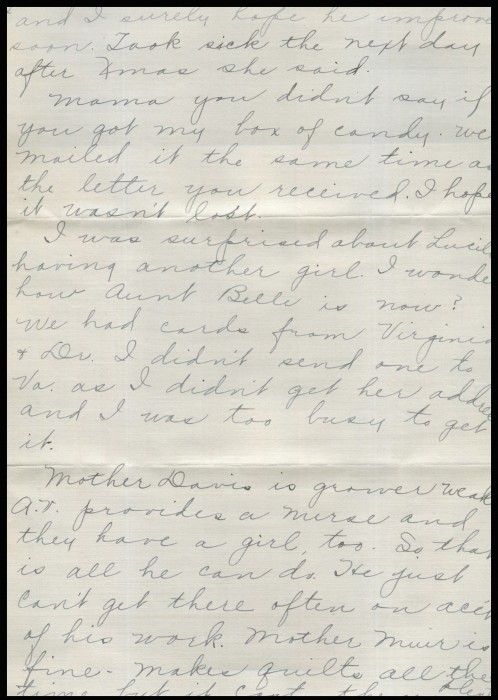 and I surely hope he improve
soon. Took sick the next day
after Xmas she said.
Mama you didn't say if
you got my box of candy. We
mailed it the same time as
the letter you received. I hope
it wasn't lost.
I was surprised about Lucil
having another girl. I wonde
how Aunt Belle is now?
We had cards from Virginia
& Dr. I didn't send one to
Va. as I didn't get her addre
and I was too busy to get
it.
Mother Davis is grower weak
A.V. provides a nurse and
they have a girl, too. So that
is all he can do. He just
can't get there often on acct
of his work. Mother Muir is
fine - makes quilts all the
time but it